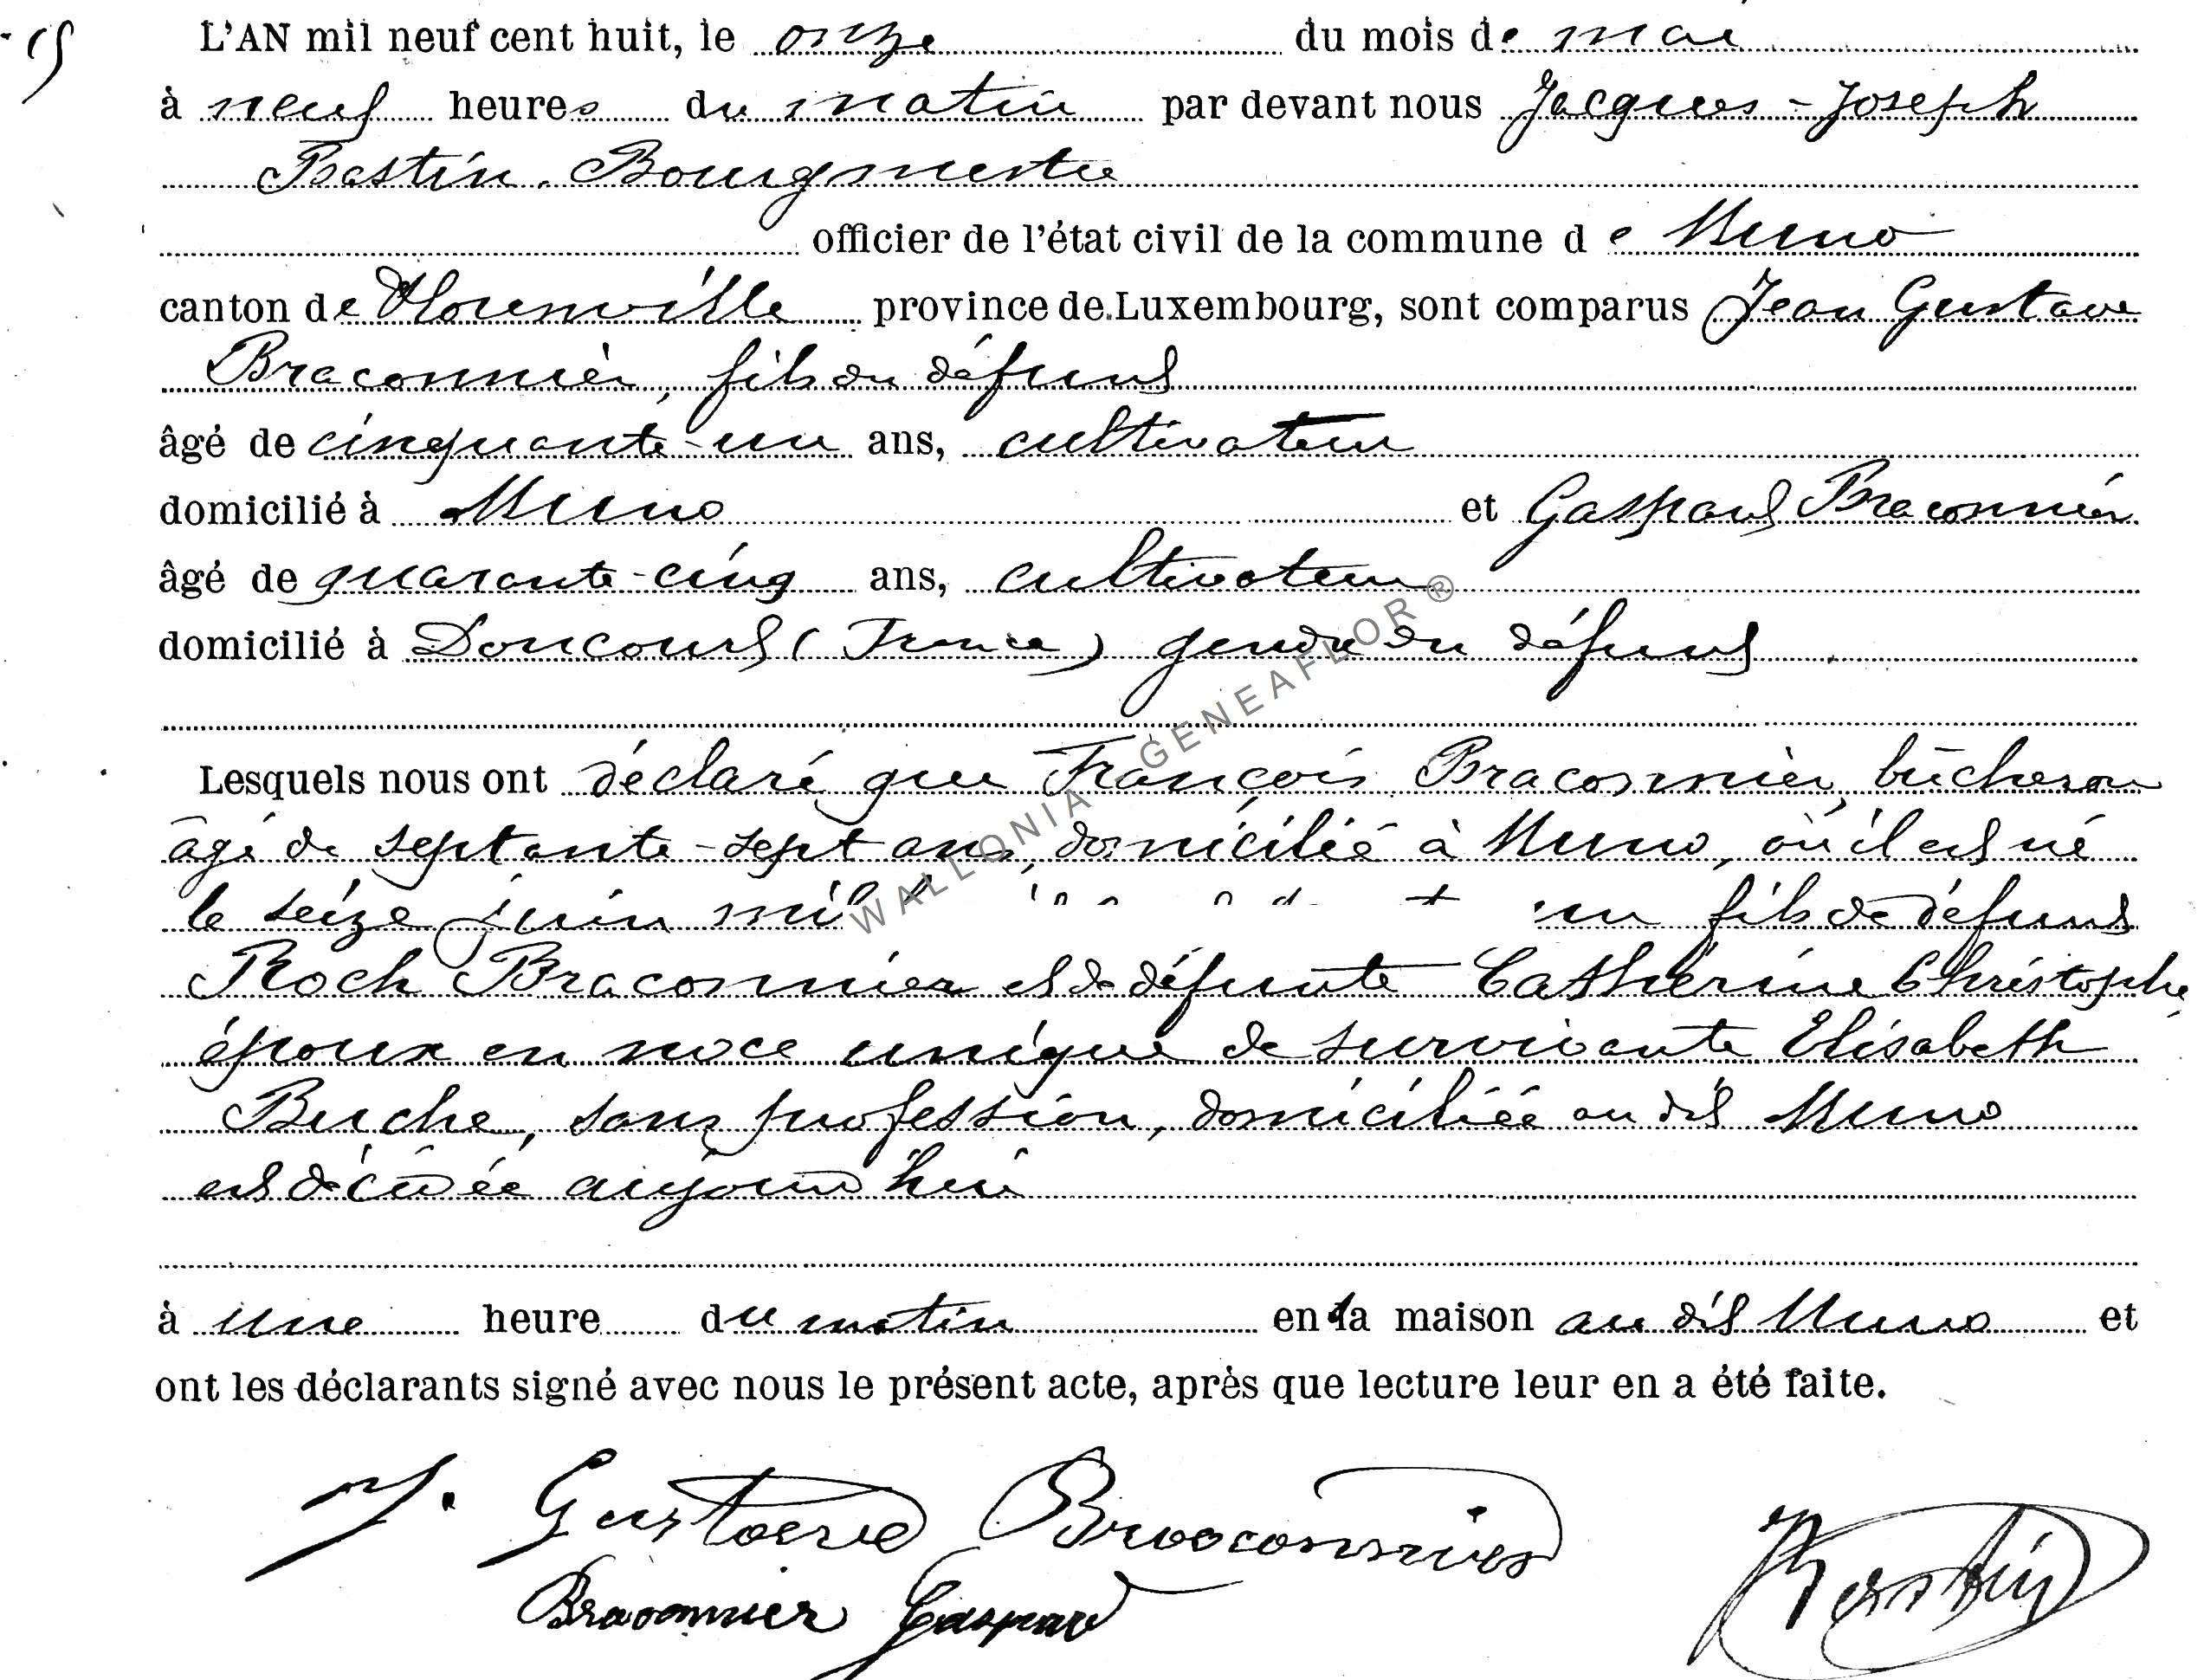 15
L'AN mil neuf cent huit, le onze du mois de mai
à neuf heures du matin par devant nous Jacques-Joseph
Bastin, Bourgmestre
officier de l'état civil de la commune de Muno
canton de Florenville province de Luxembourg, sont comparus Jean Gustave
Braconnier, fils du défunt
âgé de cinquante-un ans, cultivateur
domicilié à Muno et Gaspard Braconnier
âgé de quarante-cinq ans, cultivateur
domicilié à Doncourt (France) gendre du défunt
Lesquels nous ont déclaré que François Braconnier, bûcheron
âgé de septante-sept ans, domicilié à Muno, où il est né
le seize juin mil fils de défunt
Roch Braconnier et de défunte Catherine Christophe,
époux en noce unique de survivante Elisabeth
Buche, sans profession, domiciliée au dit Muno
est décédé aujourd'hui
à une heure du matin en la maison au dit Muno et
ont les déclarants signé avec nous le présent acte, après que lecture leur en a été faite.
J. Gustave Braconnier
Braconnier Gaspard
Bastin
WALLONIA GENEAFLOR ®